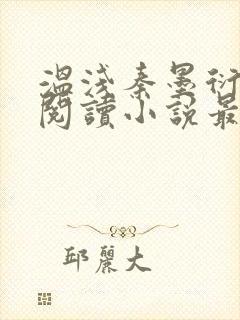 溫淺秦墨衍
閱讀小說最
邱麗大